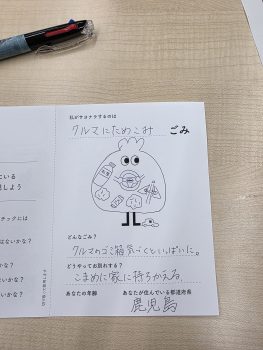 私がサヨナラするのは
クルマにためこみ ごみ
どんなごみ？
クルマのゴミ箱気づくといっぱいに。
どうやってお別れする？
こまめに家に持ちかえる。
あなたの年齢 あなたが住んでいる都道府県
鹿児島
ている
しよう
チェックには
はないかな？
いかな？
いかな？